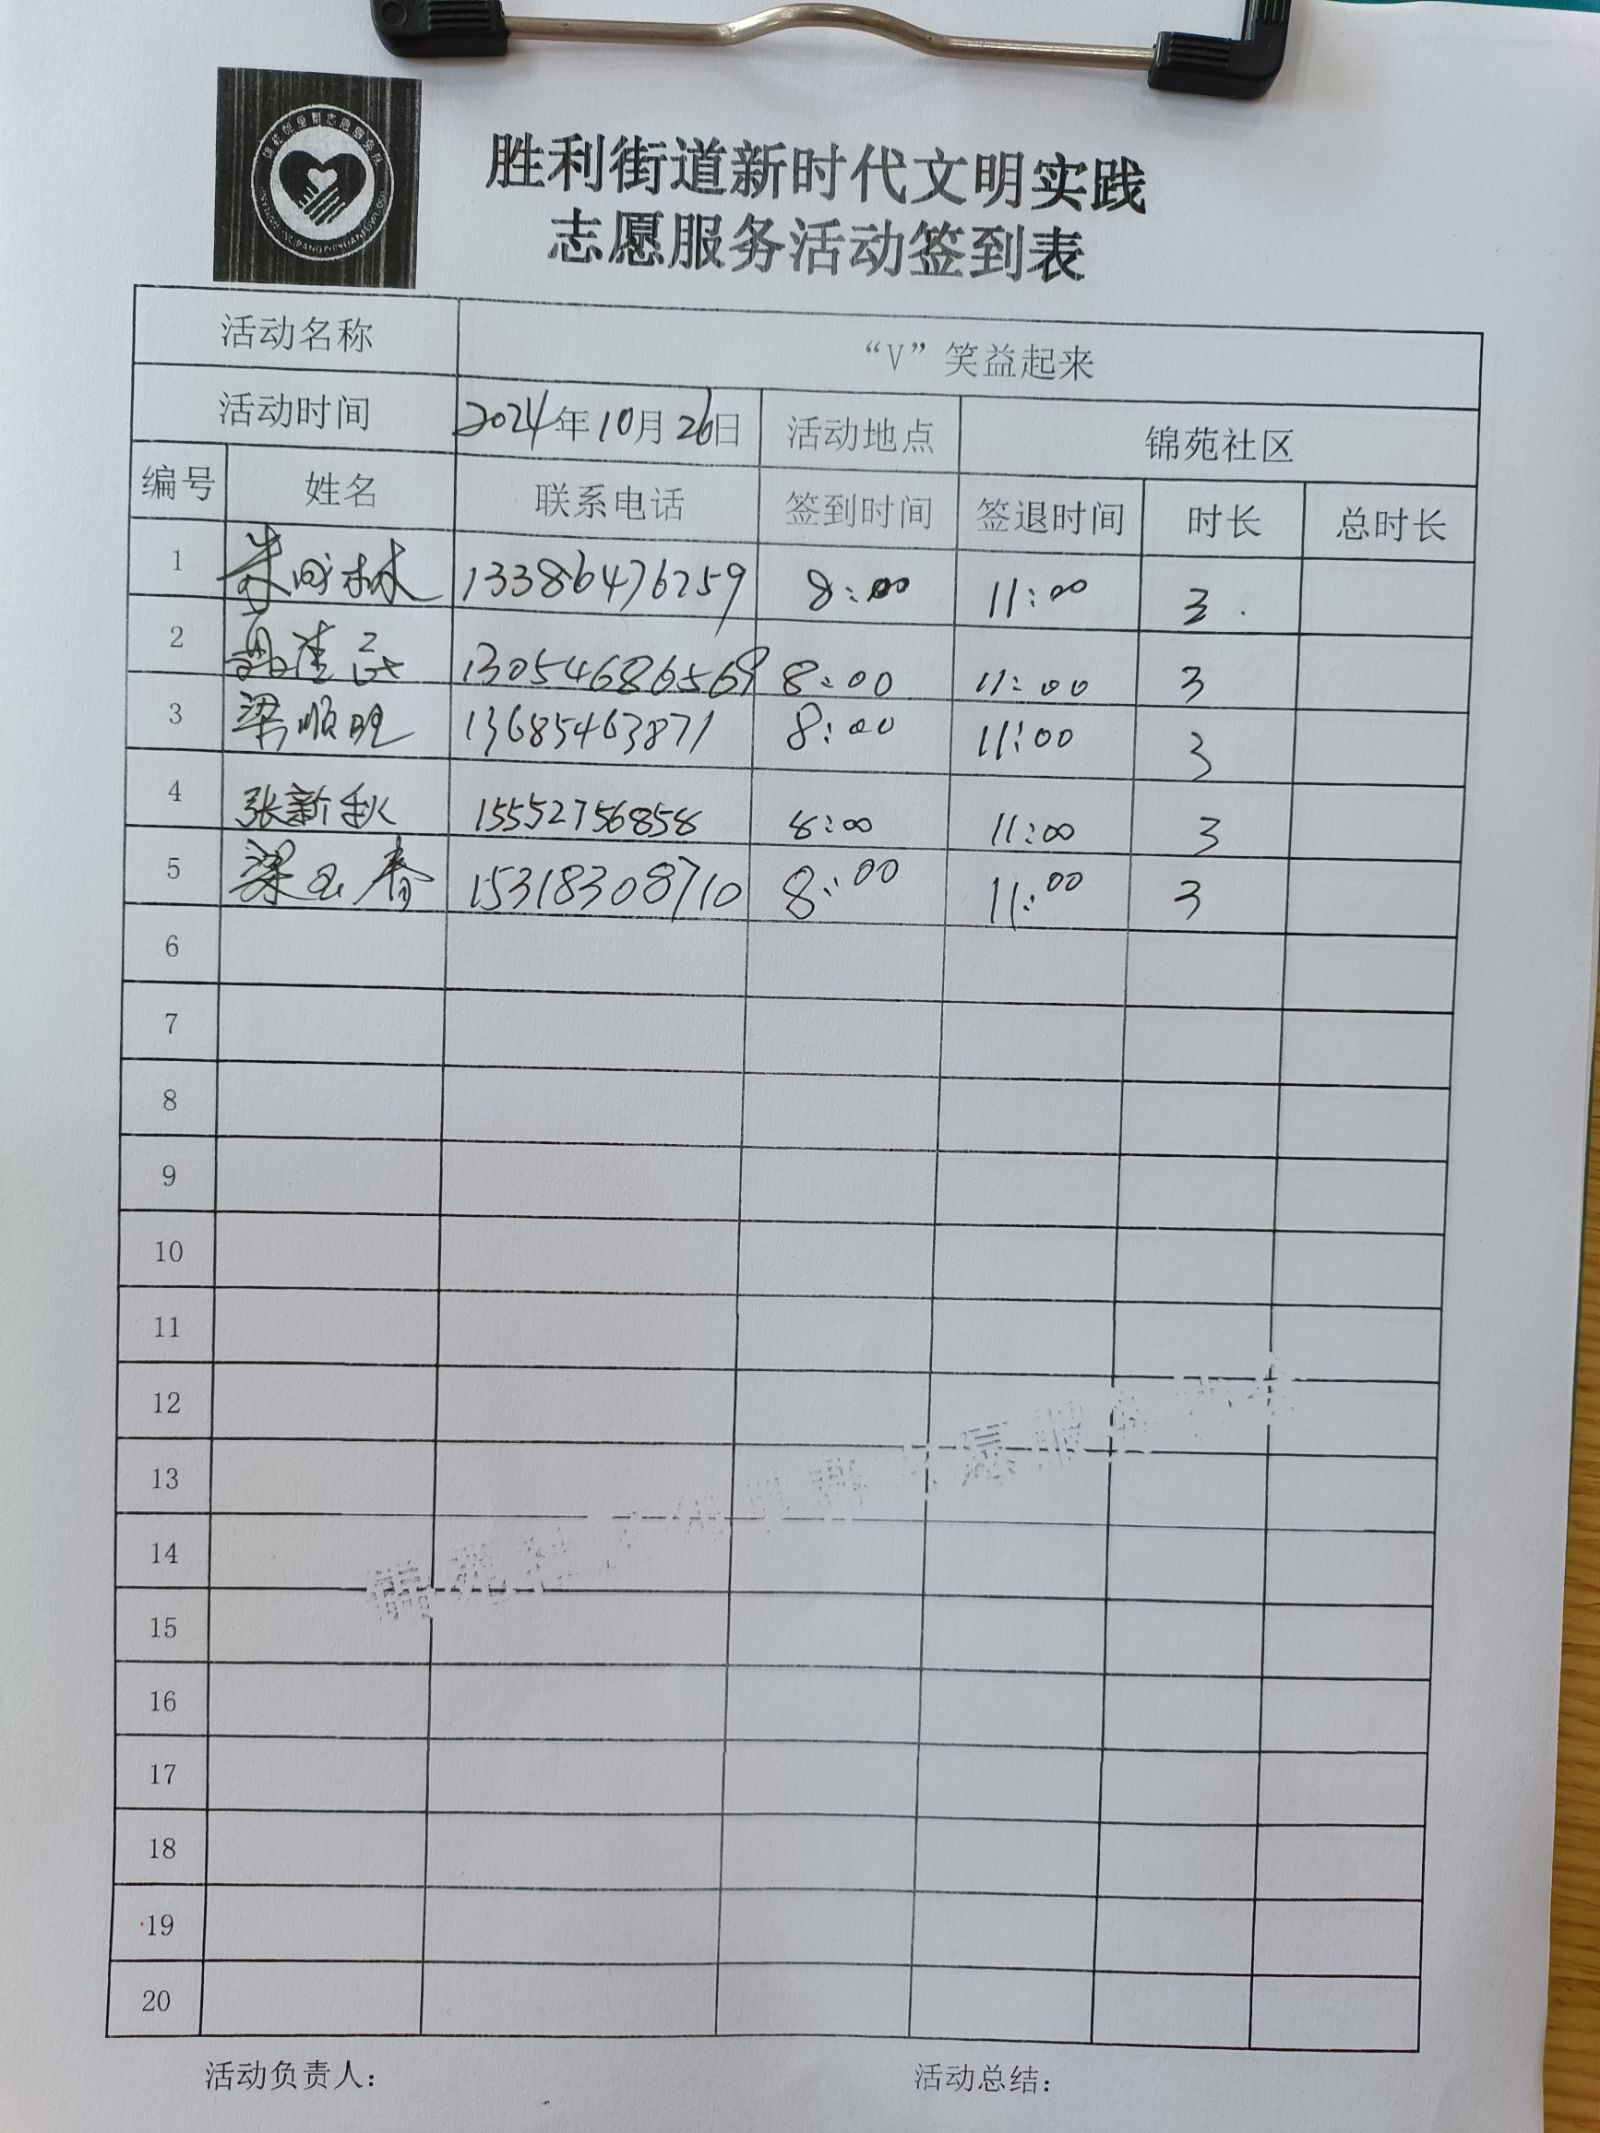 胜利街道新时代文明实践
志愿服务活动签到表
活动名称 “V”笑益起来
活动时间 2024年10月26日 活动地点 锦苑社区
编号 姓名 联系电话 签到时间 签退时间 时长 总时长
1 朱 林 13386476259 8:00 11:00 3
2 13054686569 8:00 11:00 3
3 梁顺 13685463871 8:00 11:00 3
4 张新秋 15552756858 8:00 11:00 3
5 梁玉春 15318308710 8:00 11:00 3
6
7
8
9
10
11
12
13
14
15
16
17
18
19
20
活动负责人： 活动总结：